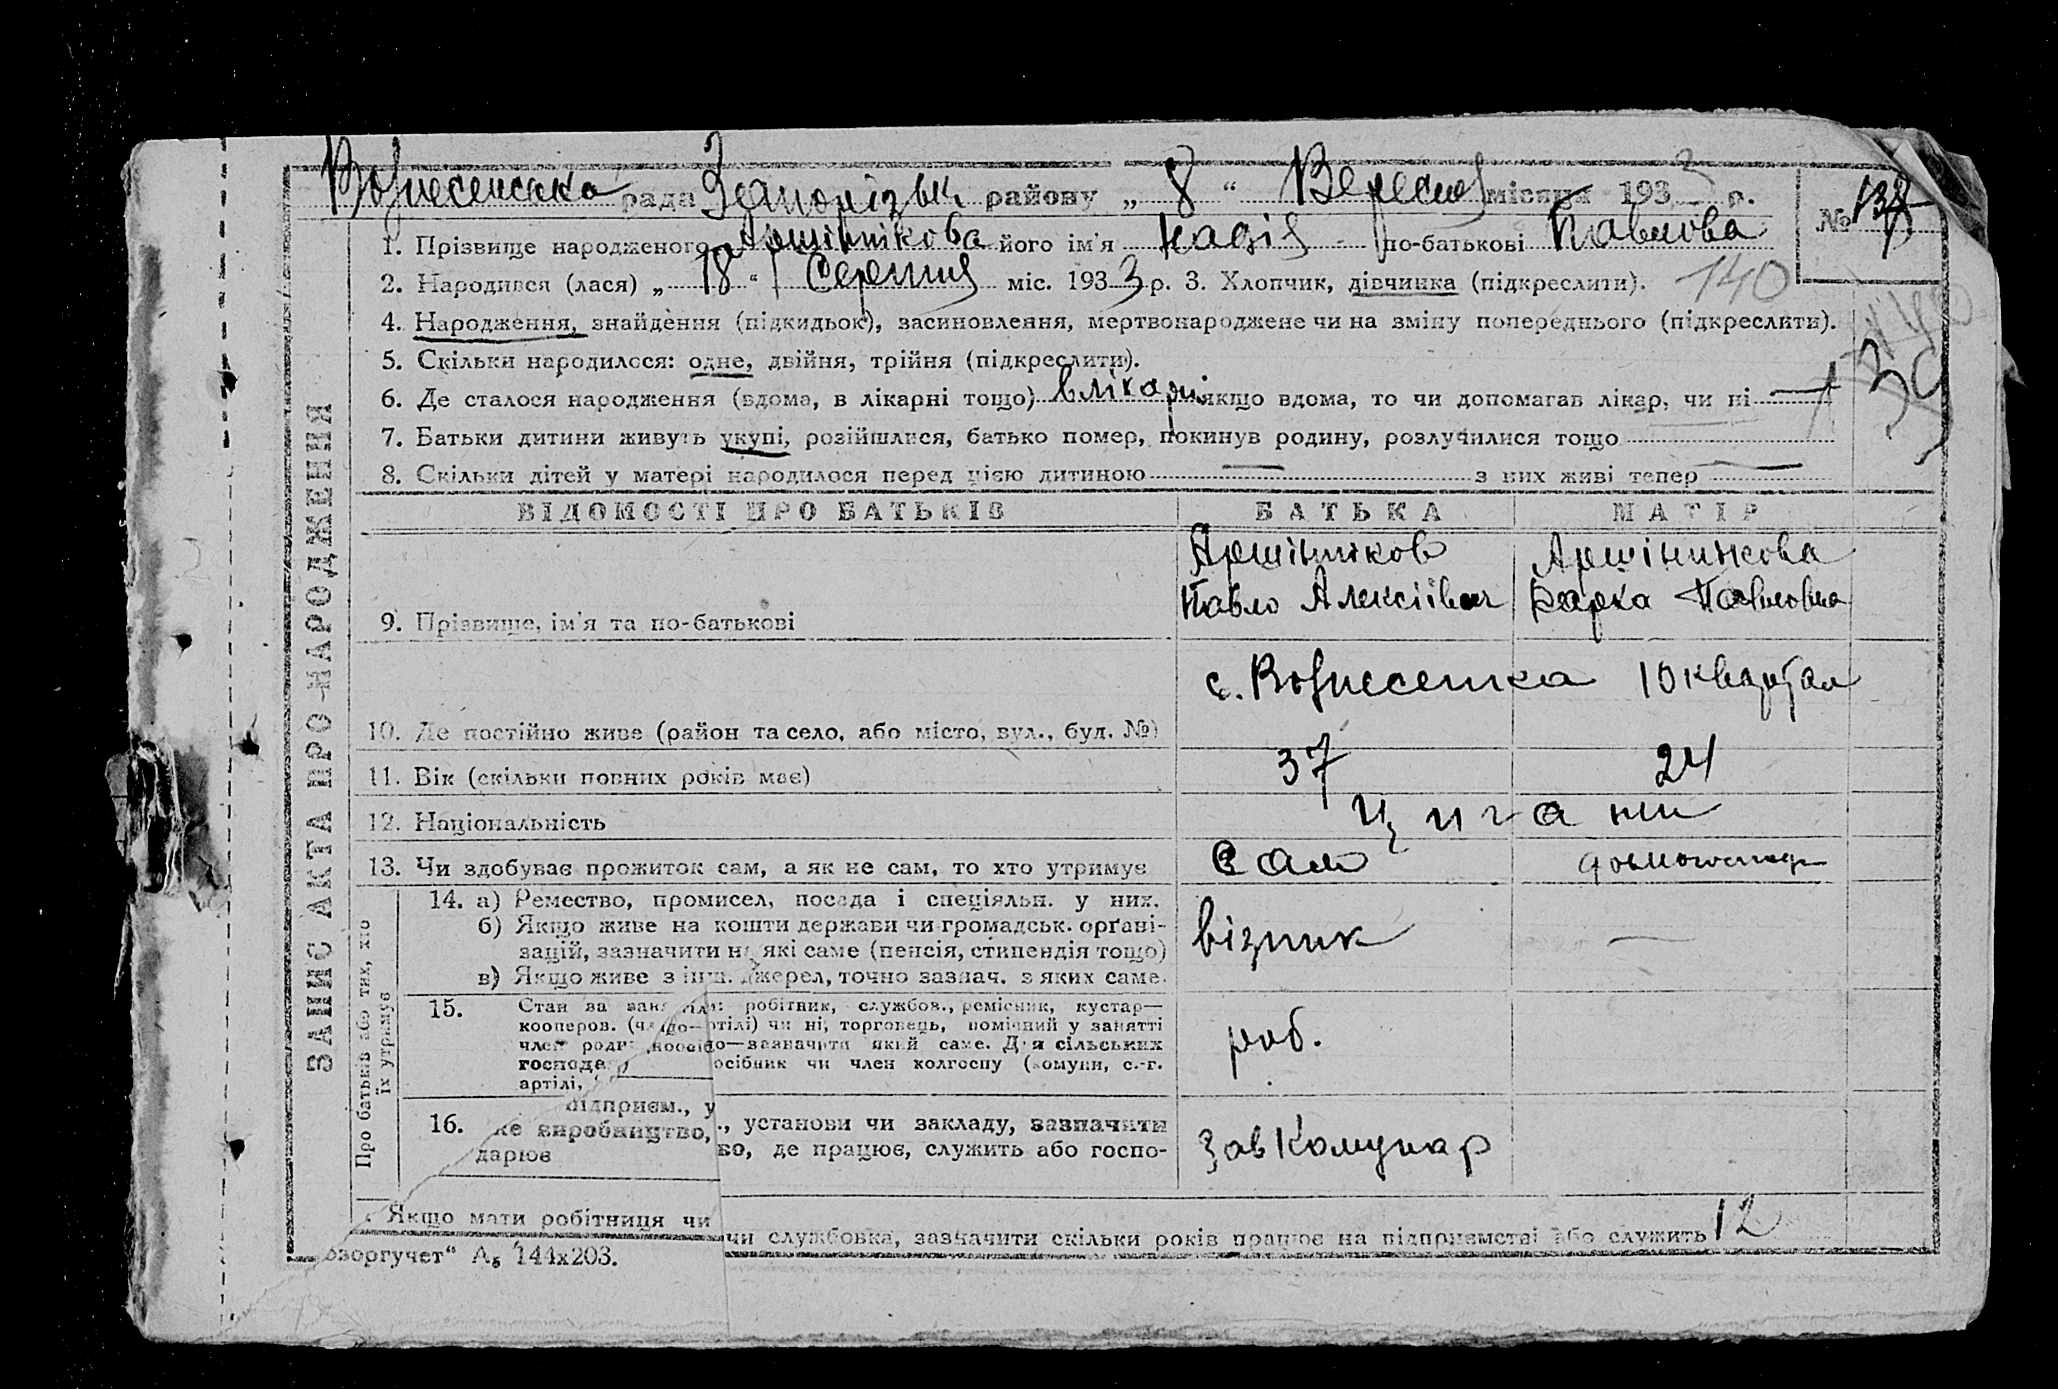 Вознесенська рада Запорізьк району „ 8 “ Вересня місяця 1933 р.
№ 138
1. Прізвище народженого Аршіннікова його ім'я Надія по-батькові Павлова
2. Народився (лася) „ 18 “ Серпня міс. 1933 р. 3. Хлопчик, дівчинка (підкреслити).
140
4. Народження, знайдення (підкидьок), засиновлення, мертвонароджене чи на зміну попереднього (підкреслити).
5. Скільки народилося: одне, двійня, трійня (підкреслити).
6. Де сталося народження (вдома, в лікарні тощо) в лікарні якщо вдома, то чи допомагав лікар, чи ні —
7. Батьки дитини живуть укупі, розійшлися, батько помер, покинув родину, розлучилися тощо
8. Скільки дітей у матері народилося перед цією дитиною — з них живі тепер —
ЗАПИС АКТА ПРО НАРОДЖЕННЯ
ВІДОМОСТІ ПРО БАТЬКІВ БАТЬКА МАТІР
Аршінніков Аршінникова
Павло Алексіївич Павловна
9. Прізвище, ім'я та по-батькові
с. Вознесенка 10 квартал
10. Де постійно живе (район та село, або місто, вул., буд. №)
11. Вік (скільки повних років має) 37 24
12. Національність цигани
13. Чи здобуває прожиток сам, а як не сам, то хто утримує Сам
Про батьків або тих, хто їх утримує
14. а) Ремество, промисел, посада і спеціяльн. у них.
б) Якщо живе на кошти держави чи громадськ. орґані-
зацій, зазначити на які саме (пенсія, стипендія тощо)
в) Якщо живе з інш. джерел, точно зазнач. з яких саме.
візник —
15. Стан за занят робітник, службов., ремісник, кустар—
кооперов. (чл артілі) чи ні, торговець, помічний у занятті
член роди —зазначити який саме. Для сільських
господа осібник чи член колгоспу (комуни, с.-г.
артілі,
роб.
підприєм., у
16. , установи чи закладу, зазначити
яке виробництво,
во, де працює, служить або госпо-
дарює
Зав Комунар
Якщо мати робітниця чи
чи службовка, зазначити скільки років працює на підприємстві або служить 12
озоргучет“ А₅ 144х203.